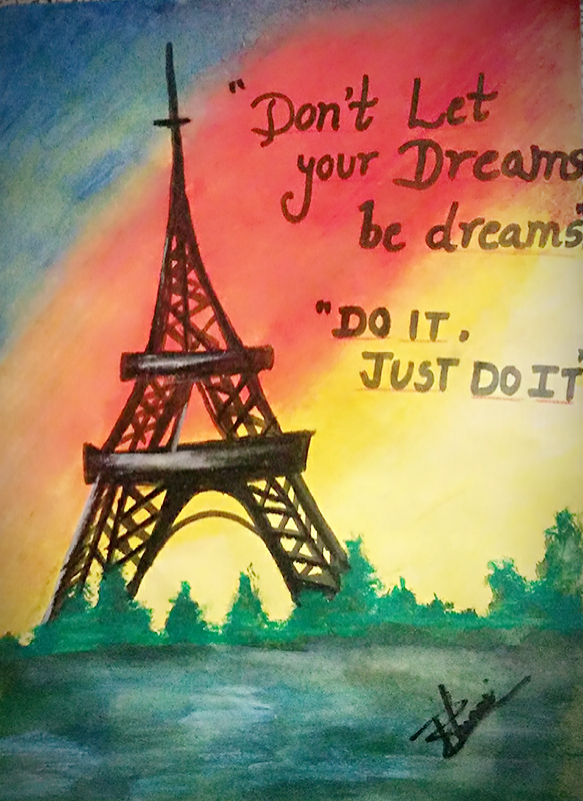 "Don't Let
your Dreams
be dreams"
"DO IT.
JUST DO IT"